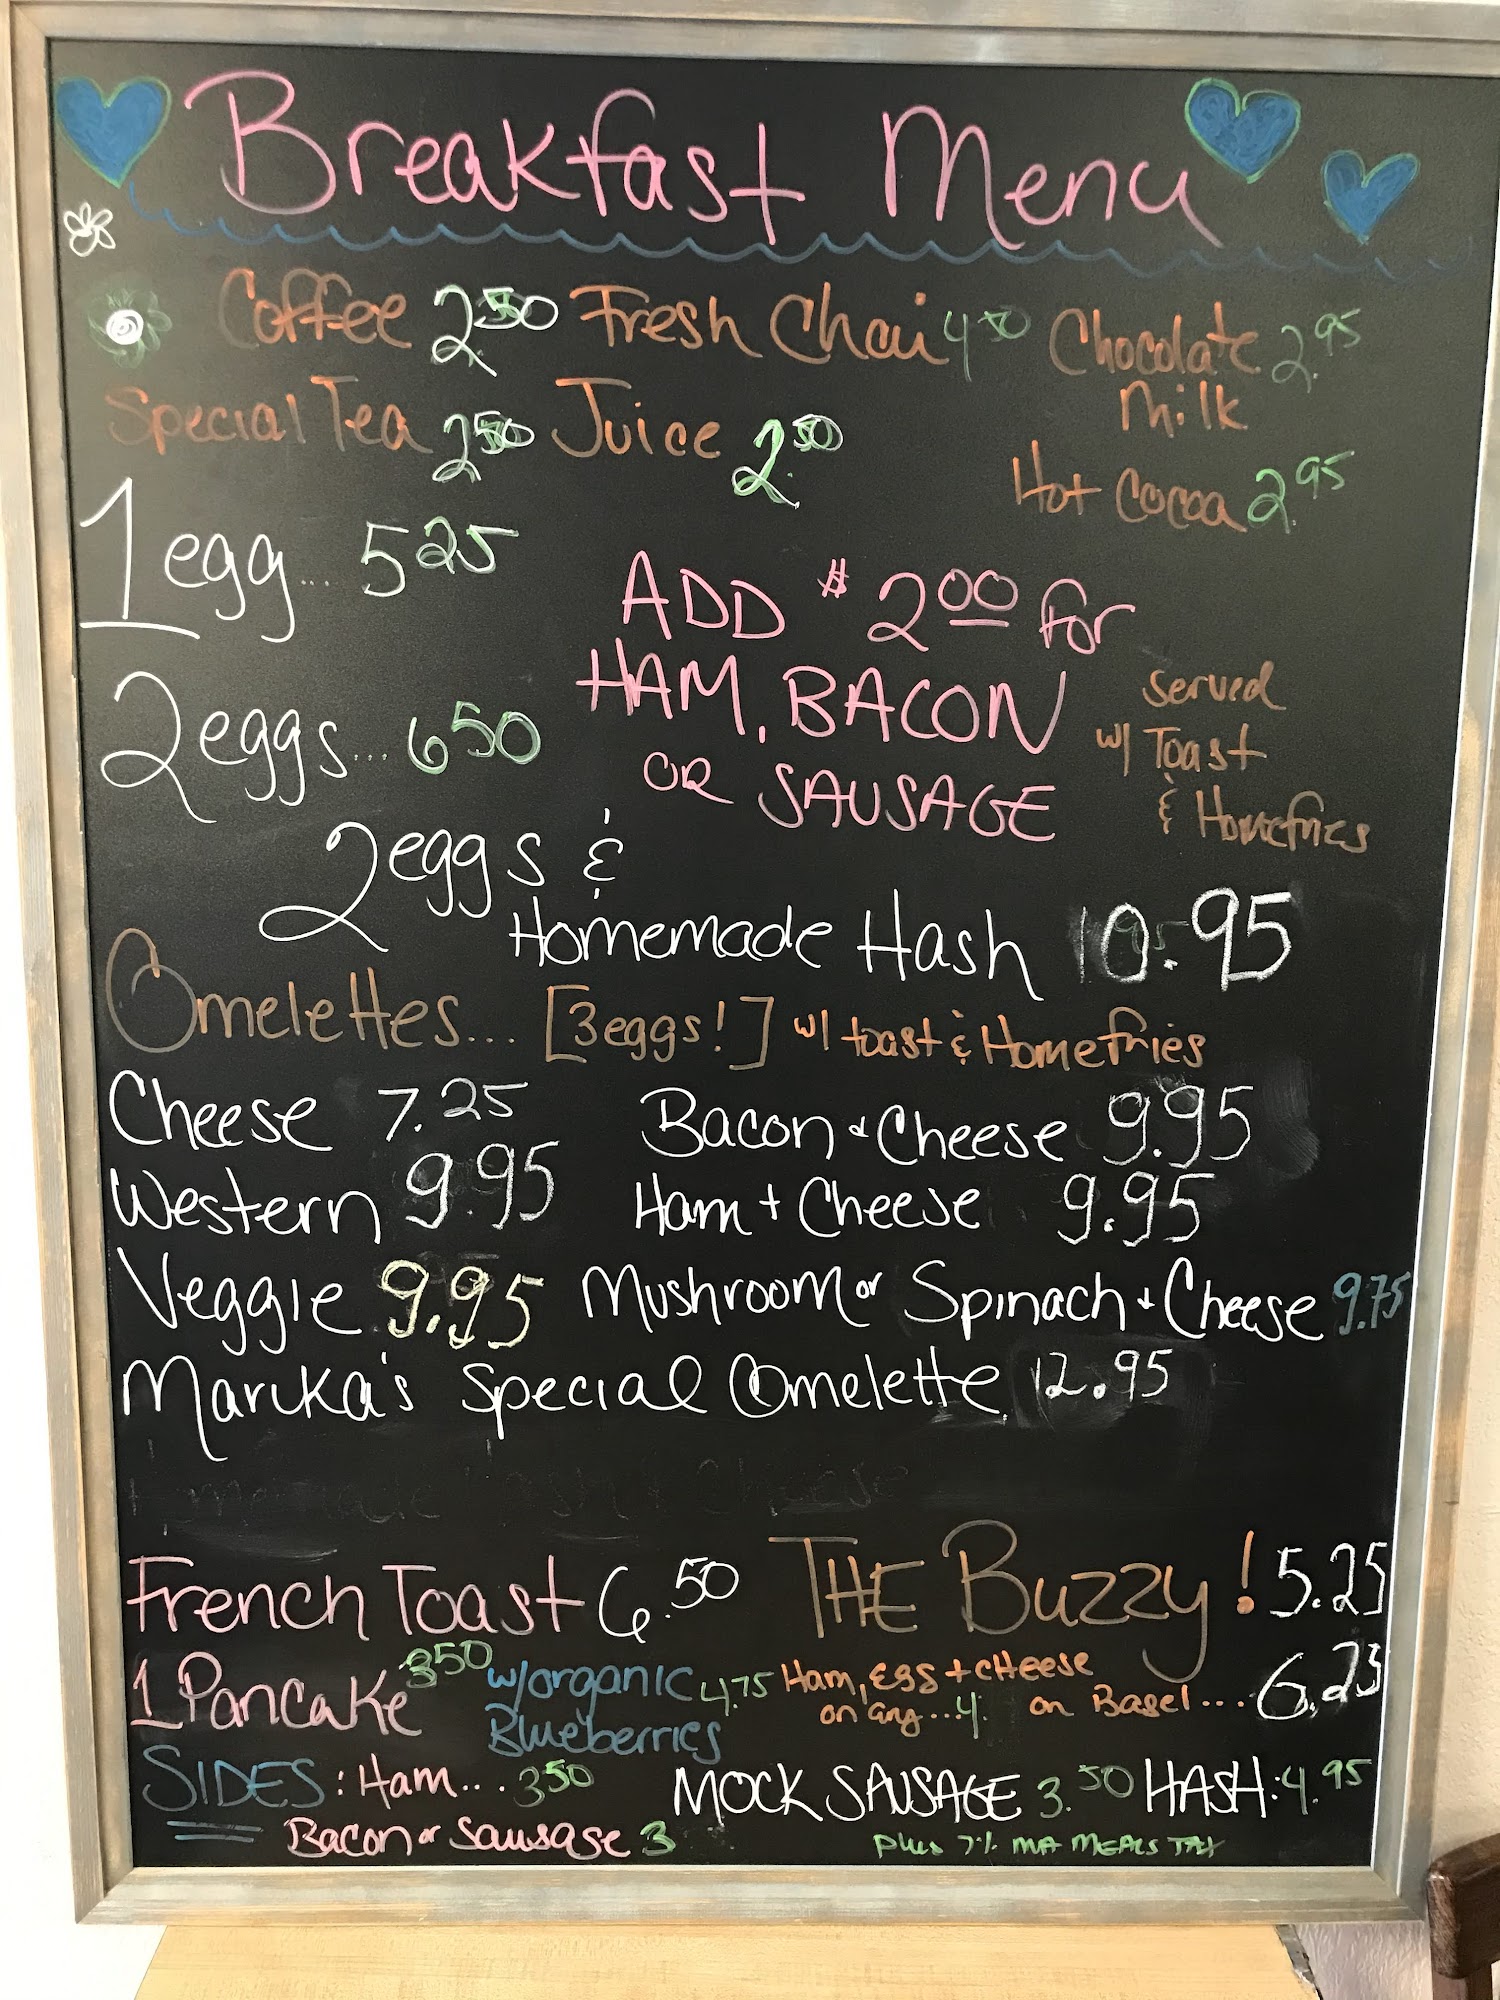 Breakfast Menu
Coffee 2.50 Fresh Chai 4.50 Chocolate Milk 2.95
Special Tea 2.50 Juice 2.50
Hot Cocoa 2.95
1 egg... 5 25
ADD $2.00 for
HAM, BACON
OR SAUSAGE
served
w/ Toast
& Homefries
2 eggs... 6 50
2 eggs &
Homemade Hash 10.95
Omelettes... [3 eggs!] w/ toast & Homefries
Cheese 7.25 Bacon + Cheese 9.95
Western 9.95 Ham + Cheese 9.95
Veggie 9.95 Mushroom or Spinach + Cheese 9.75
Marika's Special Omelette 12.95
French Toast 6.50 THE Buzzy! 5.25
1 Pancake 3 50 w/organic Blueberries 4.75
Ham, Egg + cheese
on any ...4. on Bagel.... 6.25
SIDES: Ham... 3 50 MOCK SAUSAGE 3.50 HASH: 4.95
Bacon or Sausage 3
plus 7% MA MEALS TAX